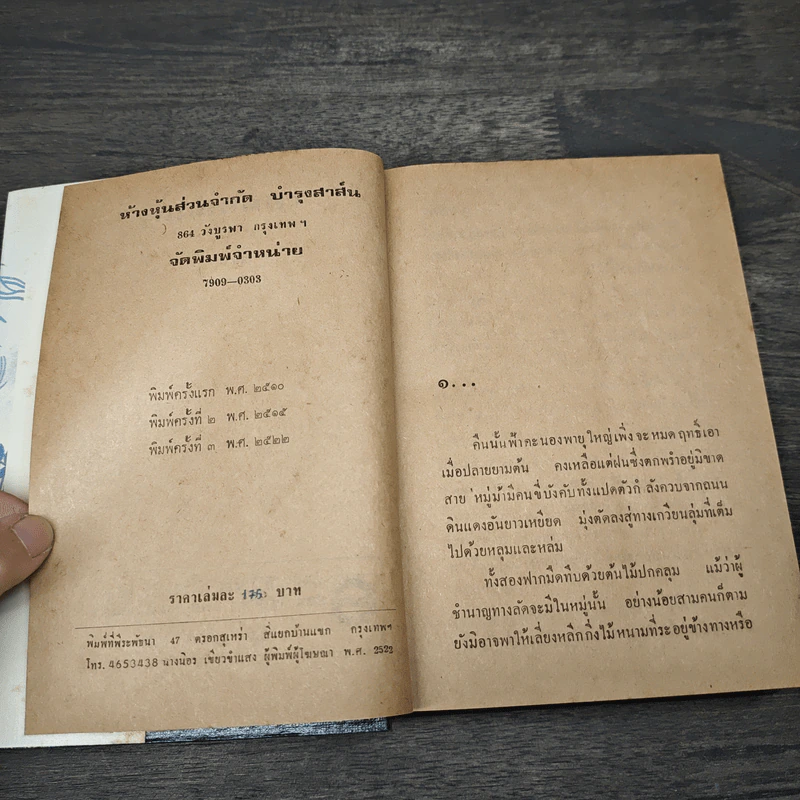 ห้างหุ้นส่วนจำกัด บำรุงสาส์น
864 วังบูรพา กรุงเทพ ฯ
จัดพิมพ์จำหน่าย
7909—0303
พิมพ์ครั้งแรก พ.ศ. ๒๕๑๐
พิมพ์ครั้งที่ ๒ พ.ศ. ๒๕๑๕
พิมพ์ครั้งที่ ๓ พ.ศ. ๒๕๒๒
ราคาเล่มละ 175 บาท
พิมพ์ที่พีระพัธนา 47 ตรอกสุเหร่า สี่แยกบ้านแขก กรุงเทพฯ
โทร. 4653438 นางนิอร เขียวขำแสง ผู้พิมพ์ผู้โฆษณา พ.ศ. 2522
๑...
คืนนั้นฟ้าคะนองพายุใหญ่เพิ่งจะหมดฤทธิ์เอา
เมื่อปลายยามต้น คงเหลือแต่ฝนซึ่งตกพรำอยู่มิขาด
สาย หมู่ม้ามีคนขี่บังคับทั้งแปดตัวก็กำลังควบจากถนน
ดินแดงอันยาวเหยียด มุ่งตัดลงสู่ทางเกวียนลุ่มที่เต็ม
ไปด้วยหลุมและหล่ม
ทั้งสองฟากมืดทึบด้วยต้นไม้ปกคลุม แม้ว่าผู้
ชำนาญทางลัดจะมีในหมู่นั้น อย่างน้อยสามคนก็ตาม
ยังมิอาจพาให้เลี่ยงหลีกกิ่งไม้หนามที่ระอยู่ข้างทางหรือ